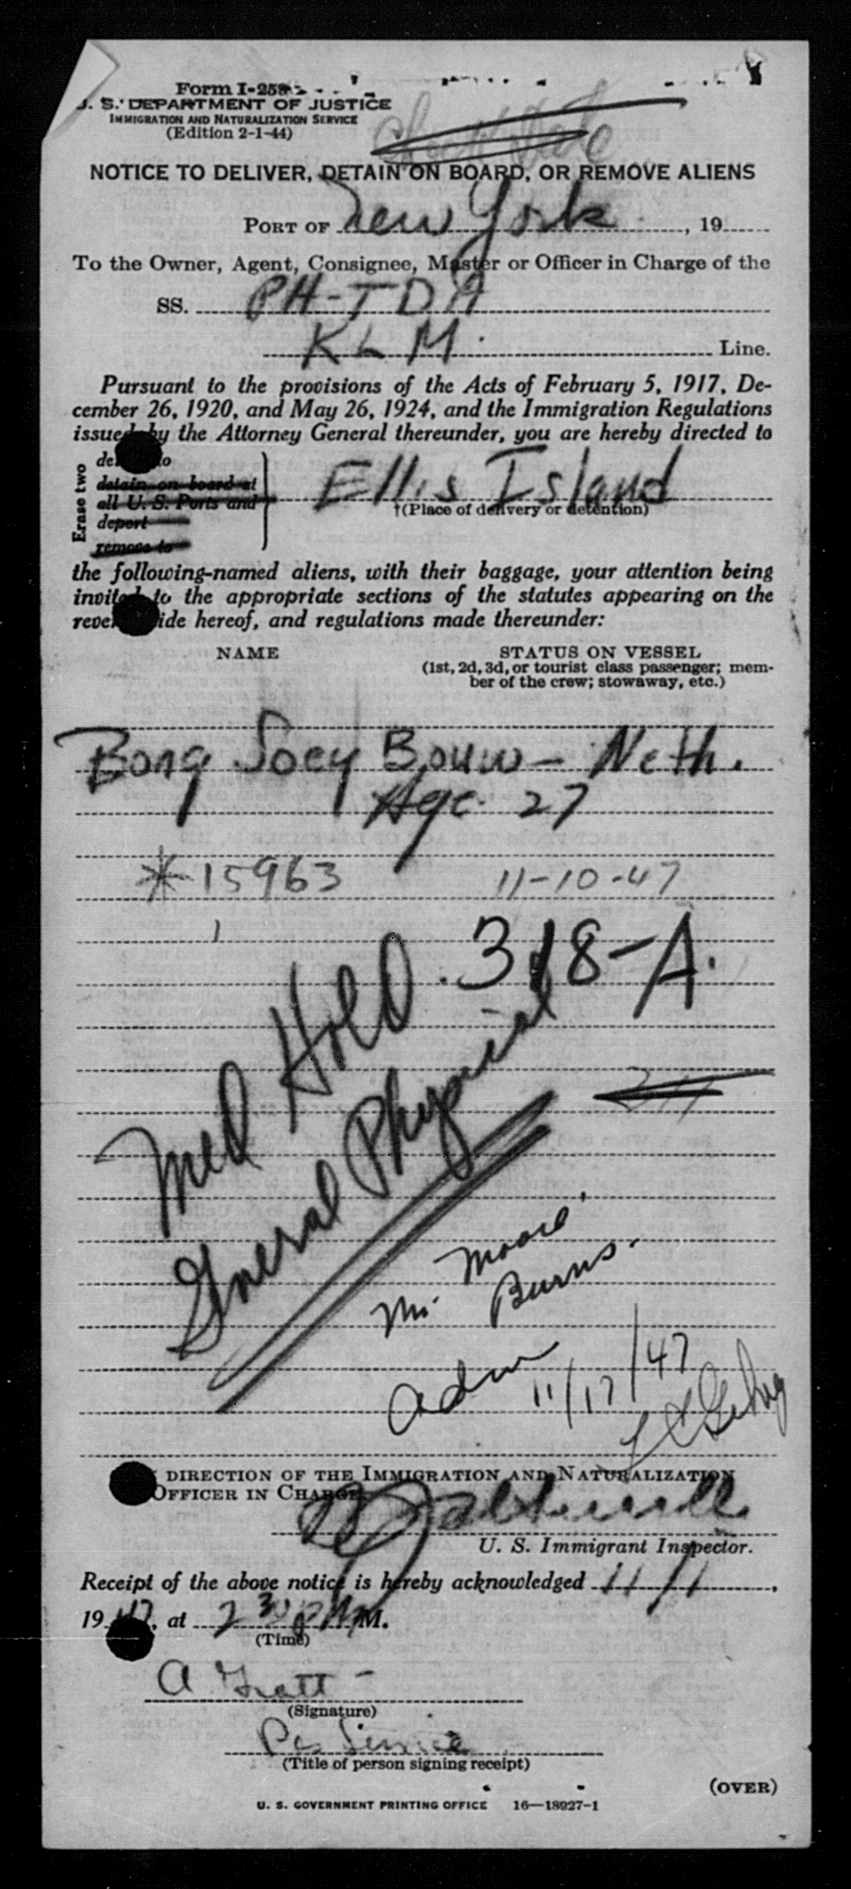 Form I-259
U. S. DEPARTMENT OF JUSTICE
IMMIGRATION AND NATURALIZATION SERVICE
(Edition 2-1-44)
NOTICE TO DELIVER, DETAIN ON BOARD, OR REMOVE ALIENS
PORT OF New York, 19
To the Owner, Agent, Consignee, Master or Officer in Charge of the
SS. PH-TDA
KLM. Line.
Pursuant to the provisions of the Acts of February 5, 1917, De-
cember 26, 1920, and May 26, 1924, and the Immigration Regulations
issued by the Attorney General thereunder, you are hereby directed to
Erase two
detain on board at
all U. S. Ports and
deport
remove to
Ellis Island
†(Place of delivery or detention)
the following-named aliens, with their baggage, your attention being
invited to the appropriate sections of the statutes appearing on the
reverse side hereof, and regulations made thereunder:
NAME
STATUS ON VESSEL
(1st, 2d, 3d, or tourist class passenger; mem-
ber of the crew; stowaway, etc.)
Bong Soey Bouw - Neth.
Age 27
*15963 11-10-47
1
318-A.
Med Hold
General Physical
Mr. Moore.
Burns.
Adm 11/17/47
DIRECTION OF THE IMMIGRATION AND NATURALIZATION
OFFICER IN CHARGE
U. S. Immigrant Inspector.
Receipt of the above notice is hereby acknowledged 11/1,
1947, at 2 30 PM M.
(Time)
(Signature)
(Title of person signing receipt)
(OVER)
U. S. GOVERNMENT PRINTING OFFICE 16—18927-1